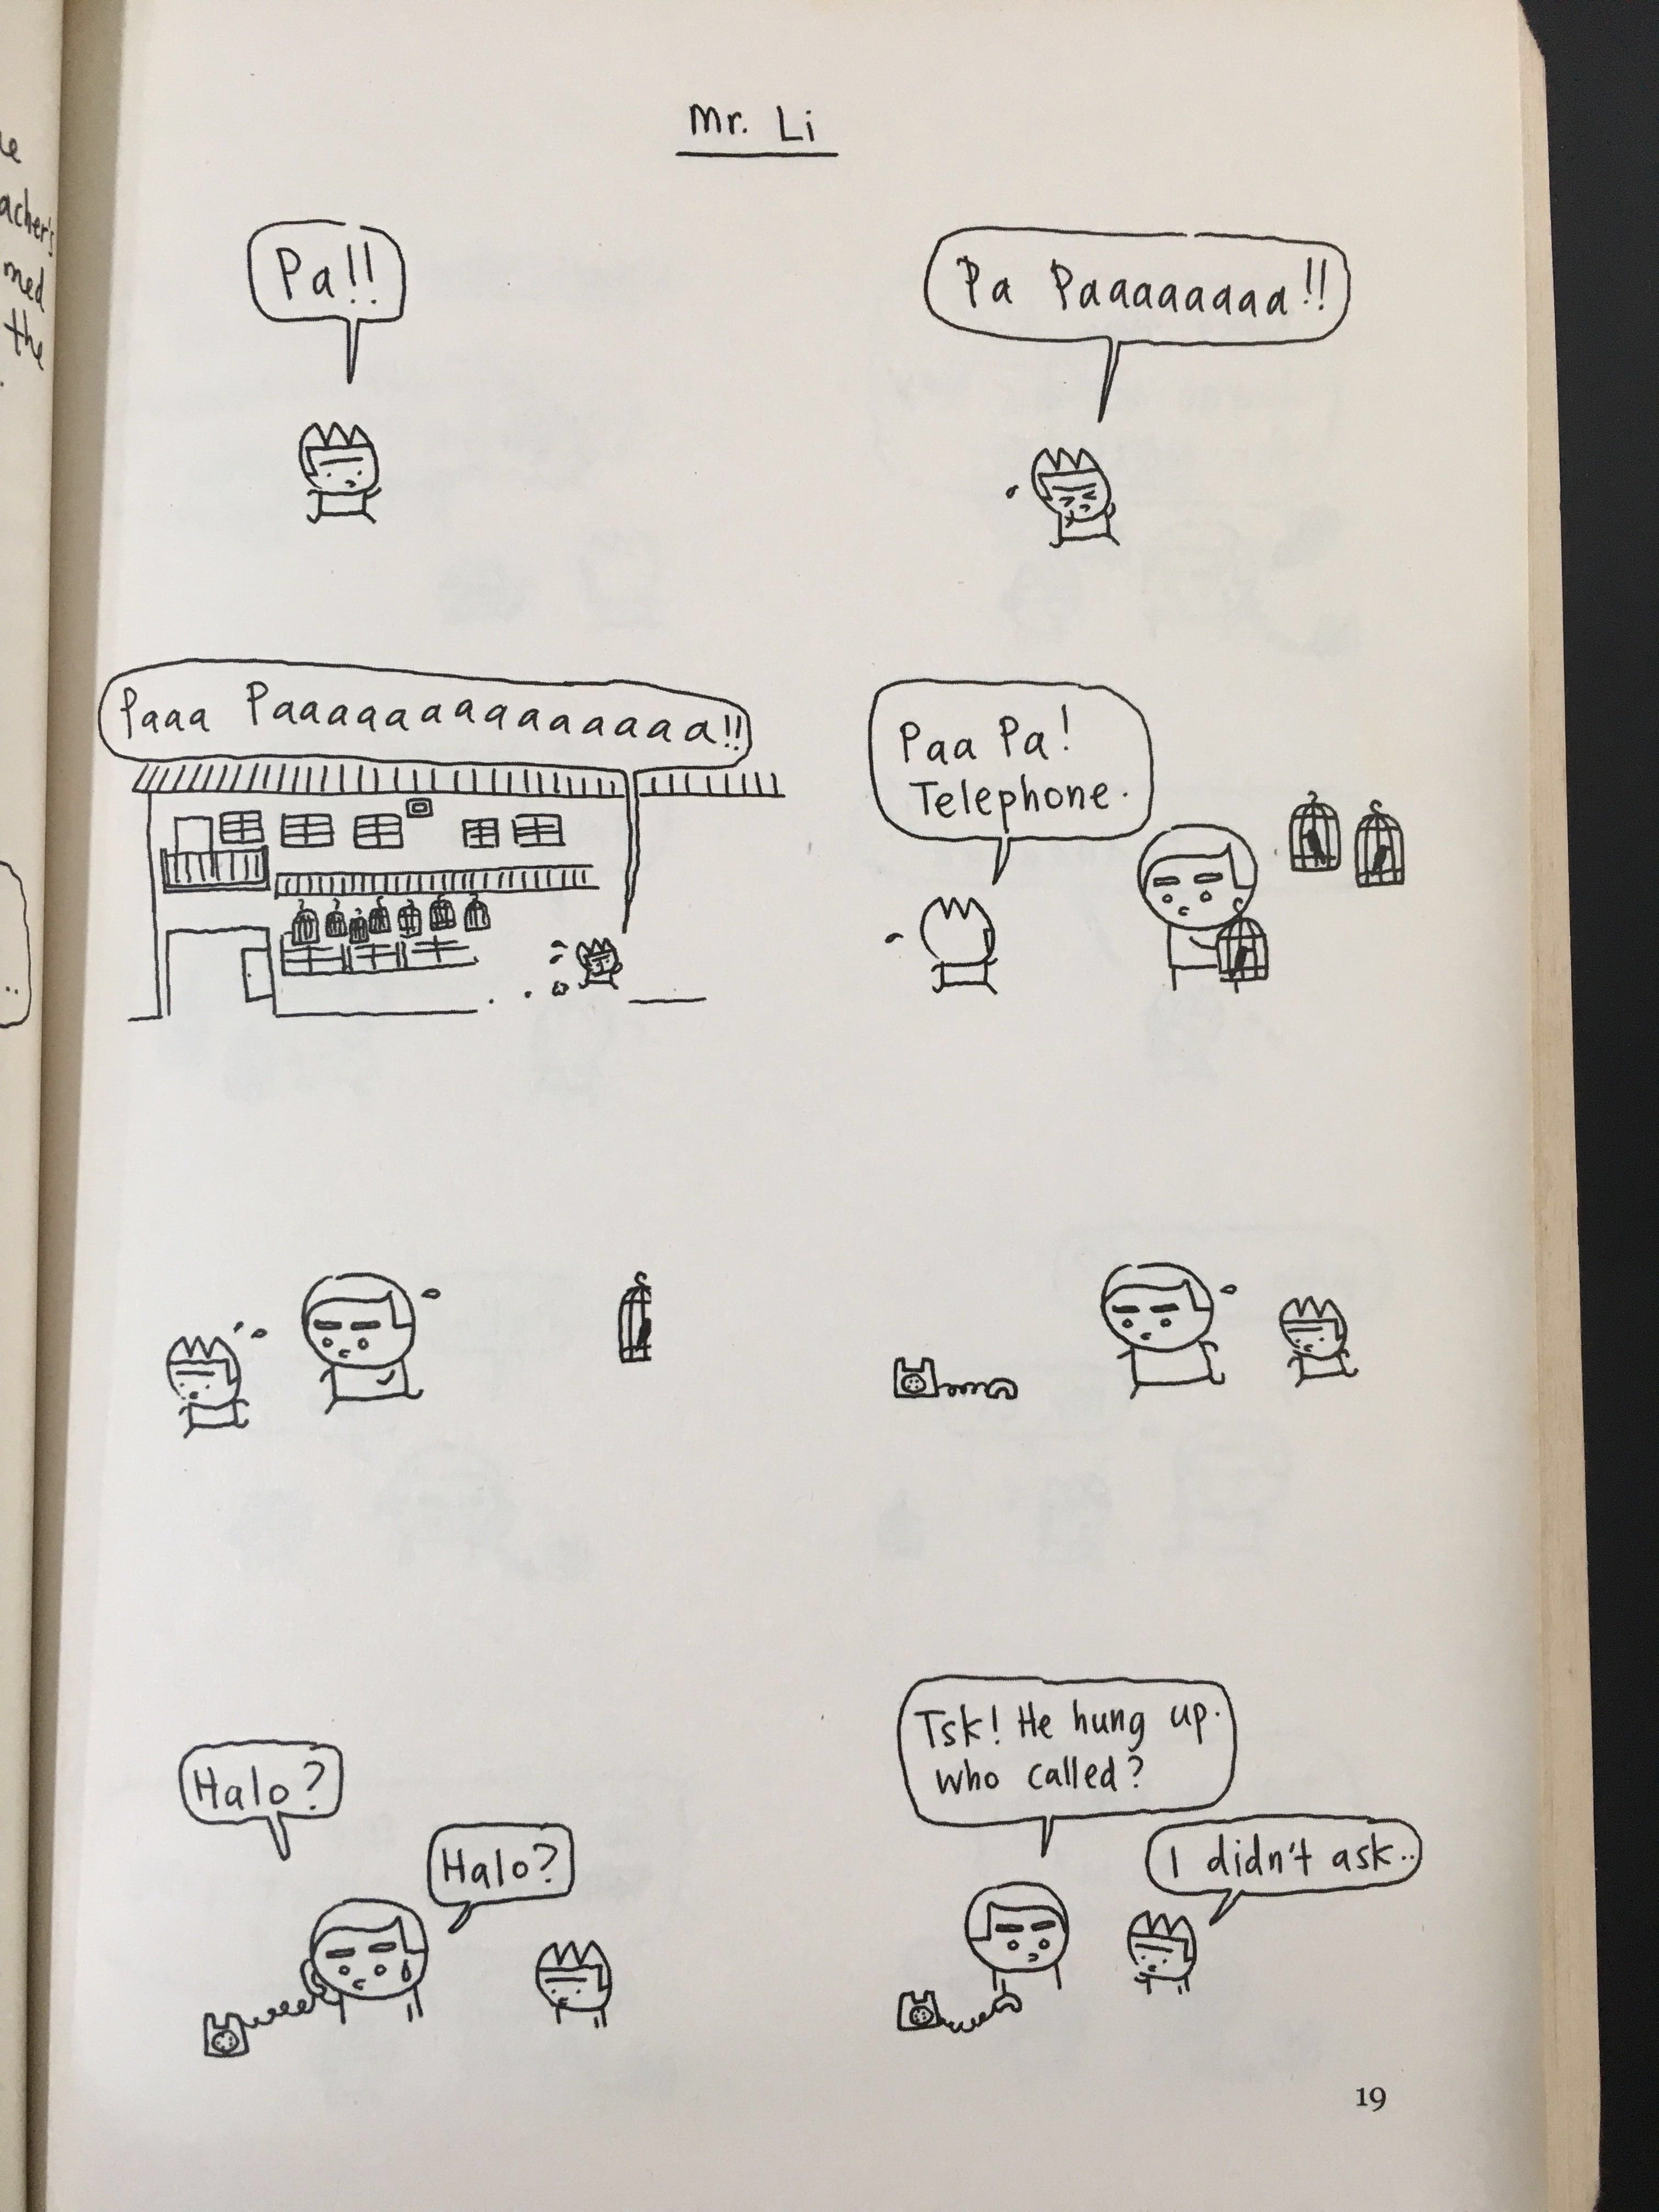 le
acher's
med
the
Mr. Li
Pa!!
Pa Paaaaaaaaa!!
Paaa Paaaaaaaaaaaaaaa!!
Paa Pa!
Telephone.
Halo?
Halo?
Tsk! He hung up.
Who called?
I didn't ask..
19